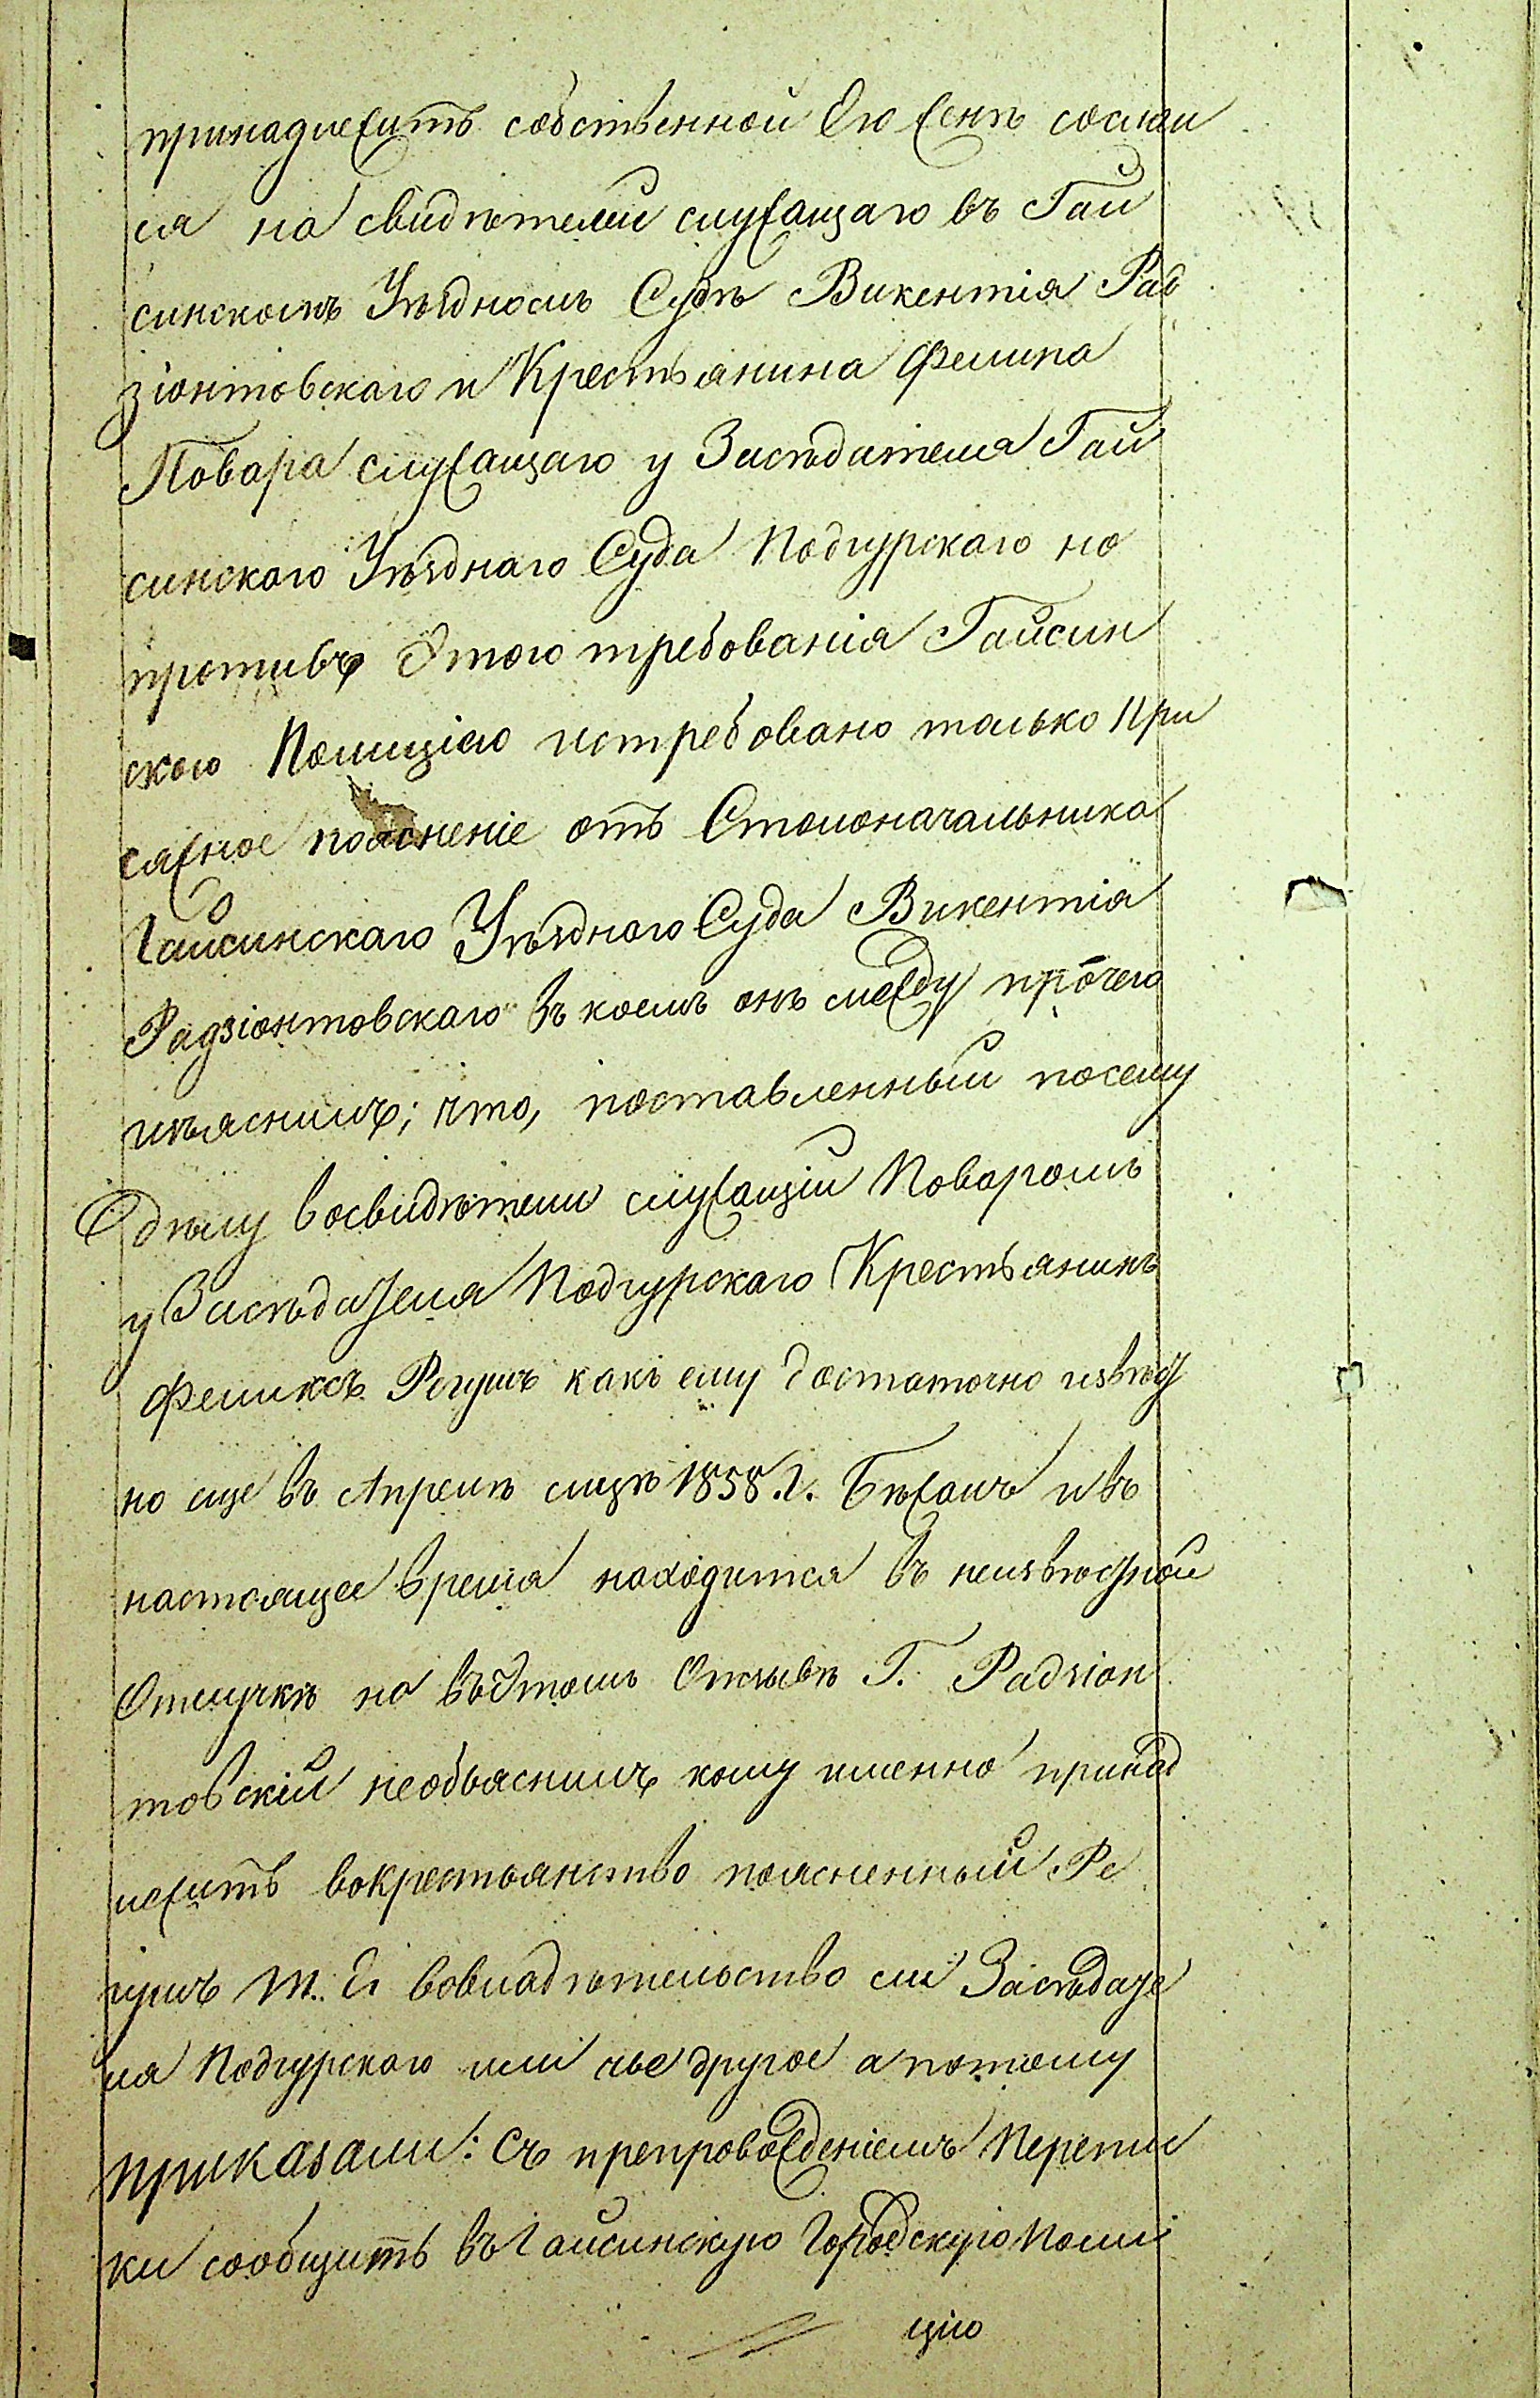 принадлежитъ собственной Его женѣ сослал
ся на свидѣтелей служащаго въ Гай
синскомъ Уѣздномъ Судѣ Викентія Рад
зіонтовскаго и Крестьянина Фелика
Повара служащаго у Засѣдателя Гай
синскаго Уѣзднаго Суда Подгурскаго но
противъ Этого требованія Гайсин
скою Полиціею истребовано только При
сяжное пояснение отъ Столоначальника
Гайсинскаго Уѣзднаго Суда Викентія
Радзіонтовскаго въ коемъ онъ между прочего
изъяснилъ; что, поставленный посему
дѣлу восвидѣтели служащій Поваромъ
у Засѣдателя Подгурскаго Крестьянинъ
Феликсъ Регушъ какъ ему достаточно извѣст
но еще въ Апрелѣ мцѣ 1858. г. Бѣжалъ и въ
настоящее время находится въ неизвѣстной
Отлучкѣ но въ Этомъ Отзывѣ Г. Радзіон
товскій необъяснилъ кому именно принад
лежитъ вокрестьянство поясненный Ре
гушъ т. Е. вовладѣтельство ли Засѣдате
ля Подгурскаго или чье другое а потому
приказали: Съ препровожденіемъ Перепис
ки сообщить въ Гайсинскую Городскую Поли
цію